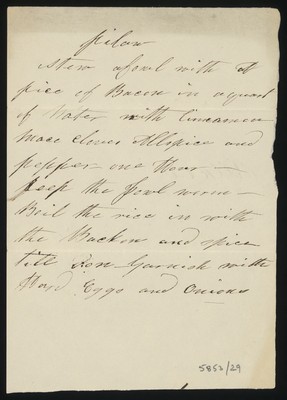 pilow
stew a fowl with a
piec of Bacon in a quart
of Water with Cincamen
Mace Cloves Allspice and
pepper - one Hour -
keep the fowl worm -
Boil the rice in with
the Backon and spice
till Don Garnish withe
Hard Eggs and Onions
5853/29